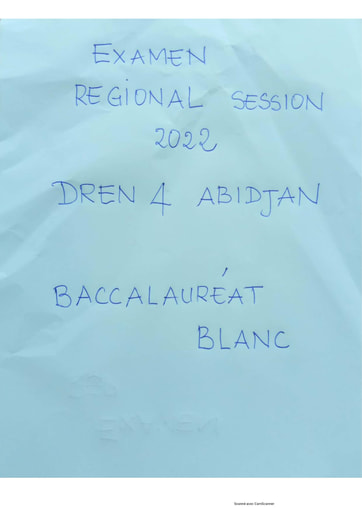 EXAMEN
REGIONAL SESSION
2022
DREN 4 ABIDJAN
BACCALAURÉAT
BLANC
Scanned avec CamScanner